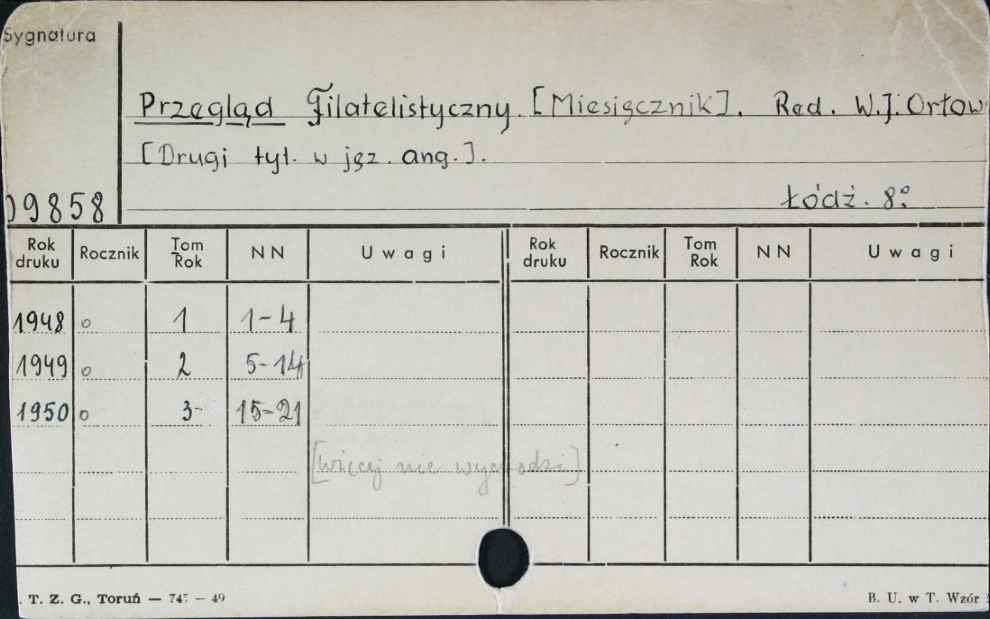 Sygnatura
Przegląd Filatelistyczny. [Miesięcznik]. Red. W.J. Orłow
[Drugi tyt. w jęz. ang.].
Łódź. 8°
09858
Rok druku Rocznik Tom Rok NN Uwagi Rok druku Rocznik Tom Rok NN Uwagi
1948 o 1 1-4
1949 o 2 5-14
1950 o 3- 15-21
[więcej nie wychodzi]
T. Z. G., Toruń — 747 — 49 B. U. w T. Wzór